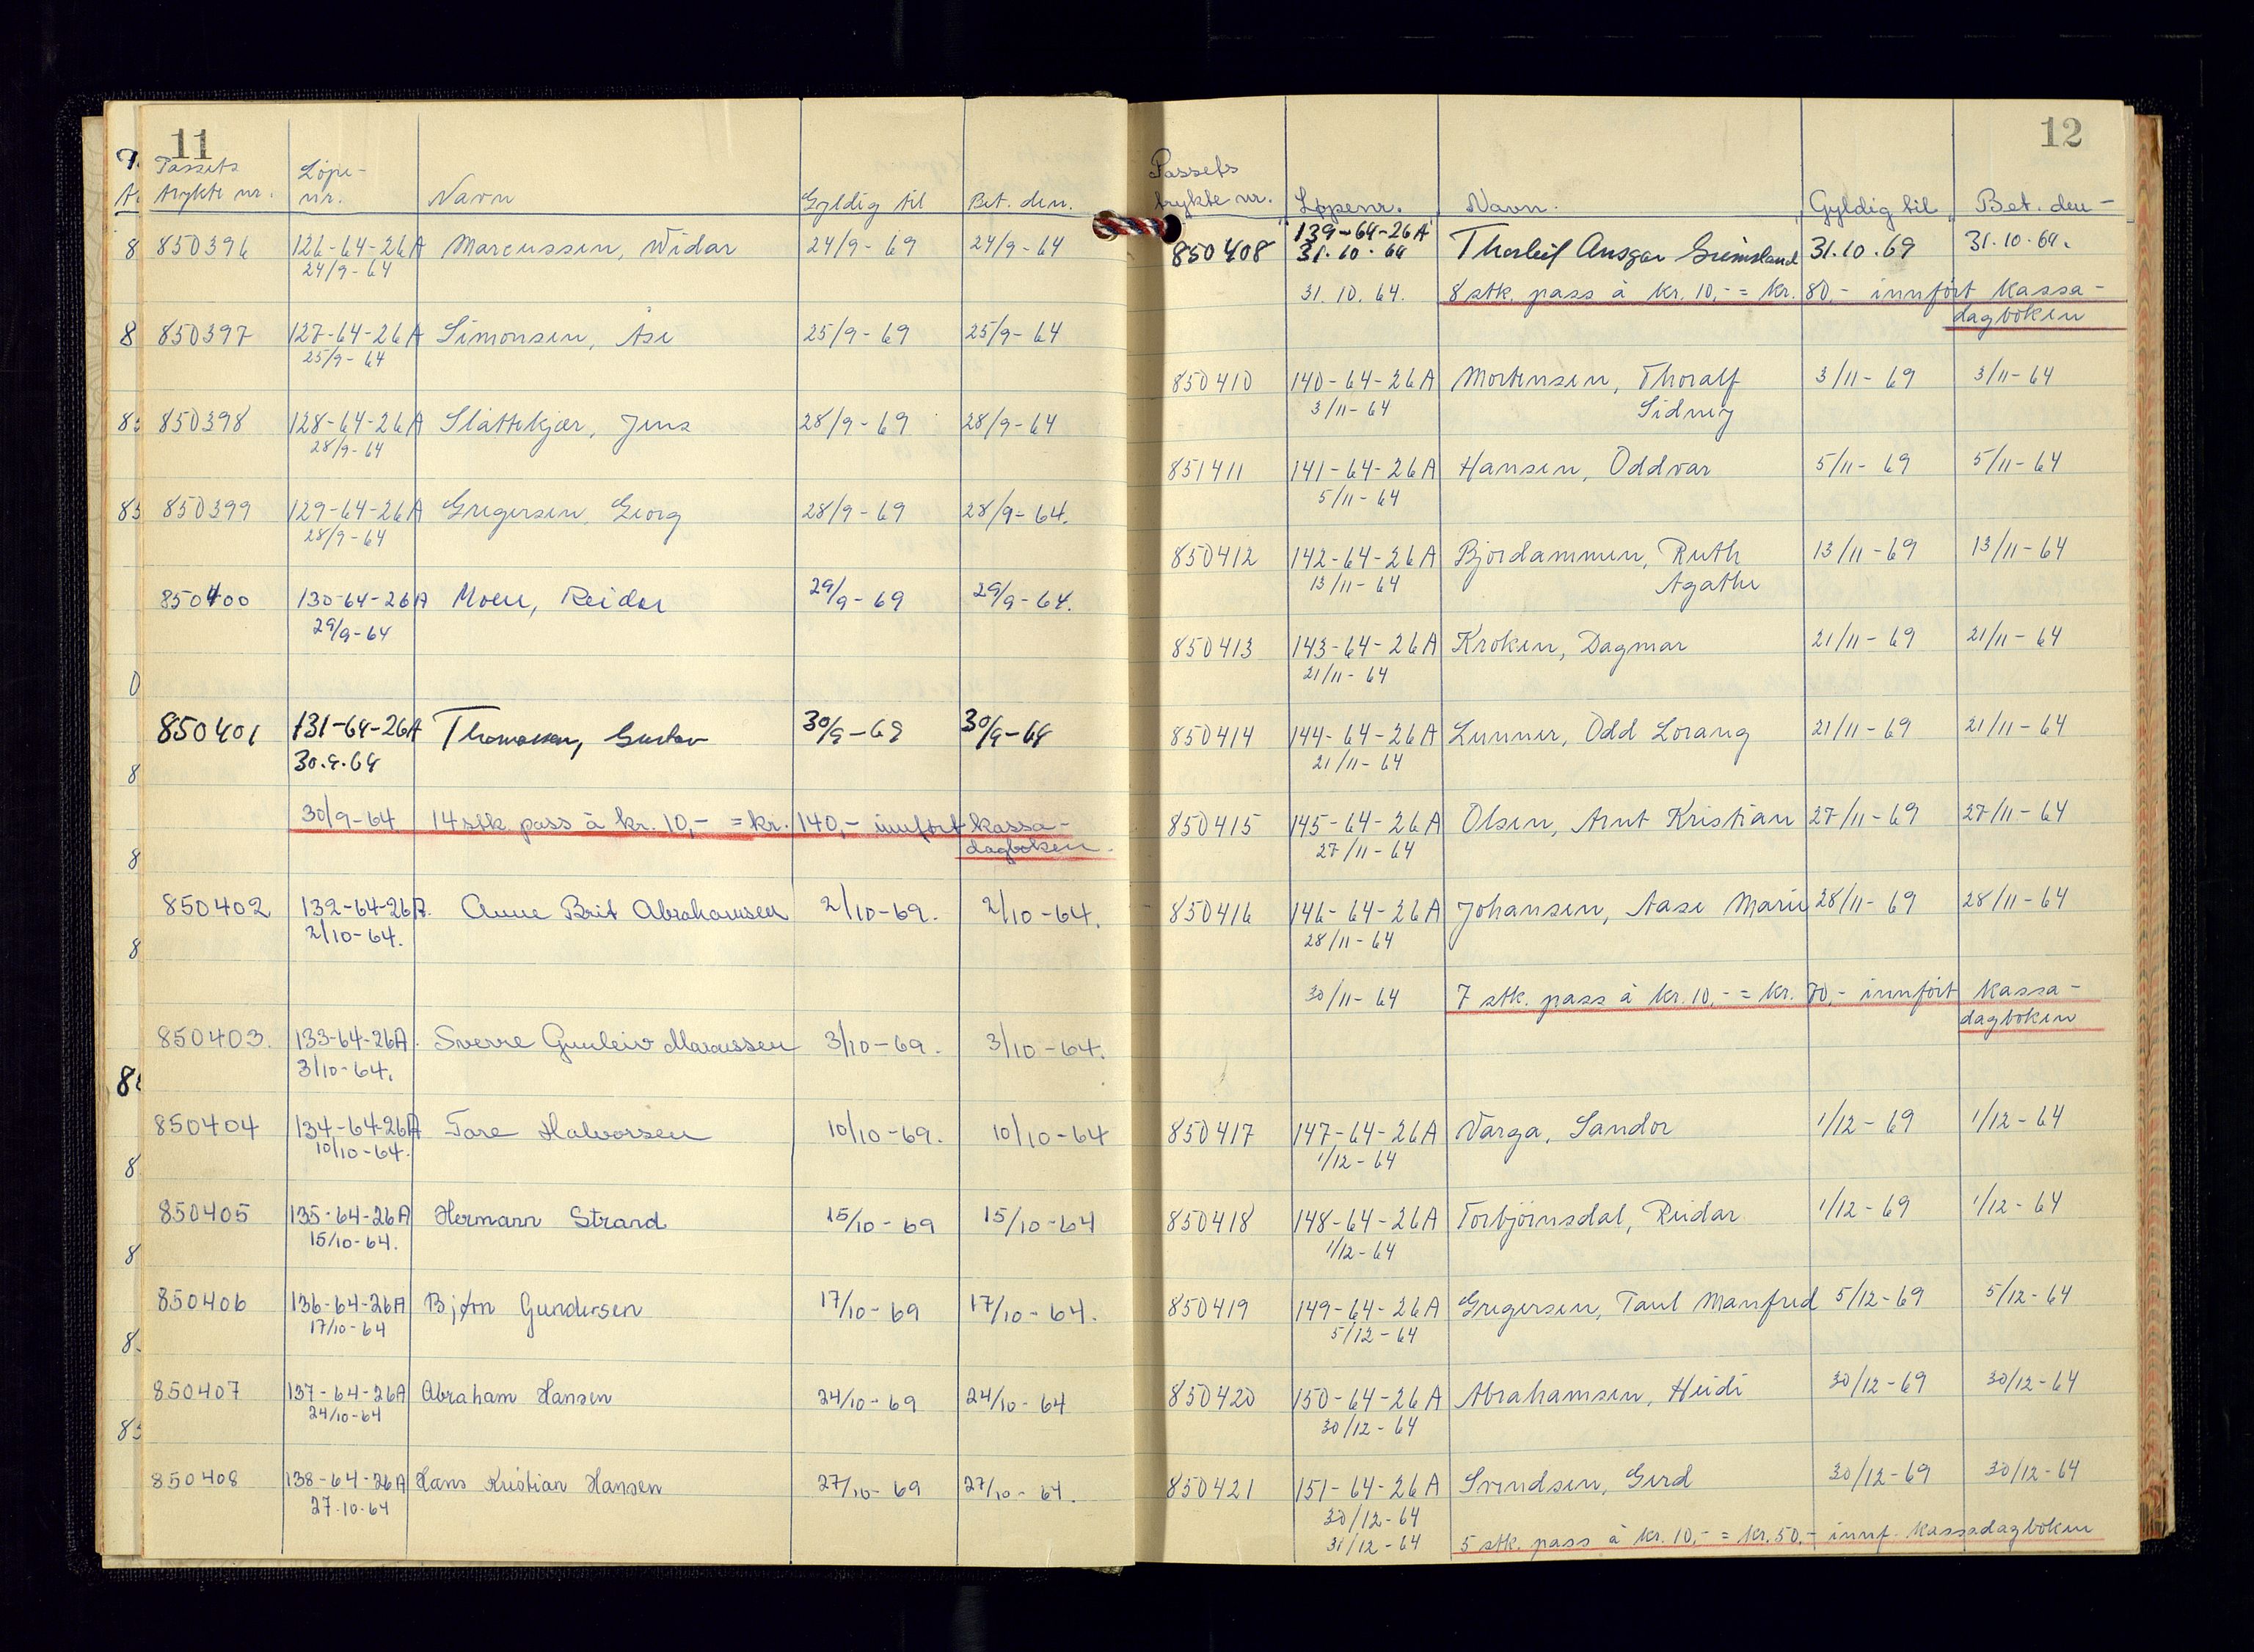 11
Passets Løpe-
trykte nr. nr. Navn Gyldig til Bet. den.
850396 126-64-26A Marcussen, Widar 24/9-69 24/9-64
24/9-64
850397 127-64-26A Simonsen, Åse 25/9-69 25/9-64
25/9-64
850398 128-64-26A Slåttekjær, Jens 28/9-69 28/9-64
28/9-64
850399 129-64-26A Gregersen, Georg 28/9-69 28/9-64.
28/9-64
850400 130-64-26A Moen, Reidar 29/9-69 29/9-64.
29/9-64
850401 131-64-26A Thomassen, Gustav 30/9-69 30/9-64
30.9.64
30/9-64 14 stk. pass à kr. 10,- = kr. 140,- innført kassa-
dagboken.
850402 132-64-26A. Anne Brit Abrahamsen 2/10-69. 2/10-64.
2/10-64.
850403. 133-64-26A. Sverre Gunleiv Marcussen 3/10-69. 3/10-64.
3/10-64.
850404 134-64-26A Tore Halvorsen 10/10-69. 10/10-64
10/10-64.
850405 135-64-26A Hermann Strand 15/10-69 15/10-64
15/10-64.
850406 136-64-26A Bjørn Gundersen 17/10-69 17/10-64.
17/10-64
850407 137-64-26A Abraham Hansen 24/10-69 24/10-64
24/10-64
850408 138-64-26A Hans Kristian Hansen 27/10-69 27/10-64.
27.10-64
12
Passets
trykte nr. Løpenr. Navn. Gyldig til Bet. den-
139-64-26A
850408 31.10.64 Thorleif Ansgar Grimsland 31.10.69 31.10.64.
31.10.64. 8 stk. pass à kr. 10,- = kr. 80,- innført kassa-
dagboken
850410 140-64-26A Mortensen, Thoralf 3/11-69 3/11-64
3/11-64 Sidney
851411 141-64-26A Hansen, Oddvar 5/11-69 5/11-64
5/11-64
850412 142-64-26A Bjordammen, Ruth 13/11-69 13/11-64
13/11-64 Agathe
850413 143-64-26A Kroken, Dagmar 21/11-69 21/11-64
21/11-64
850414 144-64-26A Lunner, Odd Lorang 21/11-69 21/11-64
21/11-64
850415 145-64-26A Olsen, Arnt Kristian 27/11-69 27/11-64
27/11-64
850416 146-64-26A Johansen, Aase Marie 28/11-69 28/11-64
28/11-64
30/11-64 7 stk. pass à kr. 10,- = kr. 70,- innført kassa-
dagboken
850417 147-64-26A Varga, Sandor 1/12-69 1/12-64
1/12-64
850418 148-64-26A Torbjörnsdal, Reidar 1/12-69 1/12-64
1/12-64
850419 149-64-26A Gregersen, Paul Manfred 5/12-69 5/12-64
5/12-64
850420 150-64-26A Abrahamsen, Heidi 30/12-69 30/12-64
30/12-64
850421 151-64-26A Svendsen, Gerd 30/12-69 30/12-64
30/12-64
31/12-64 5 stk. pass à kr. 10,- = kr. 50,- innf. kassadagboken